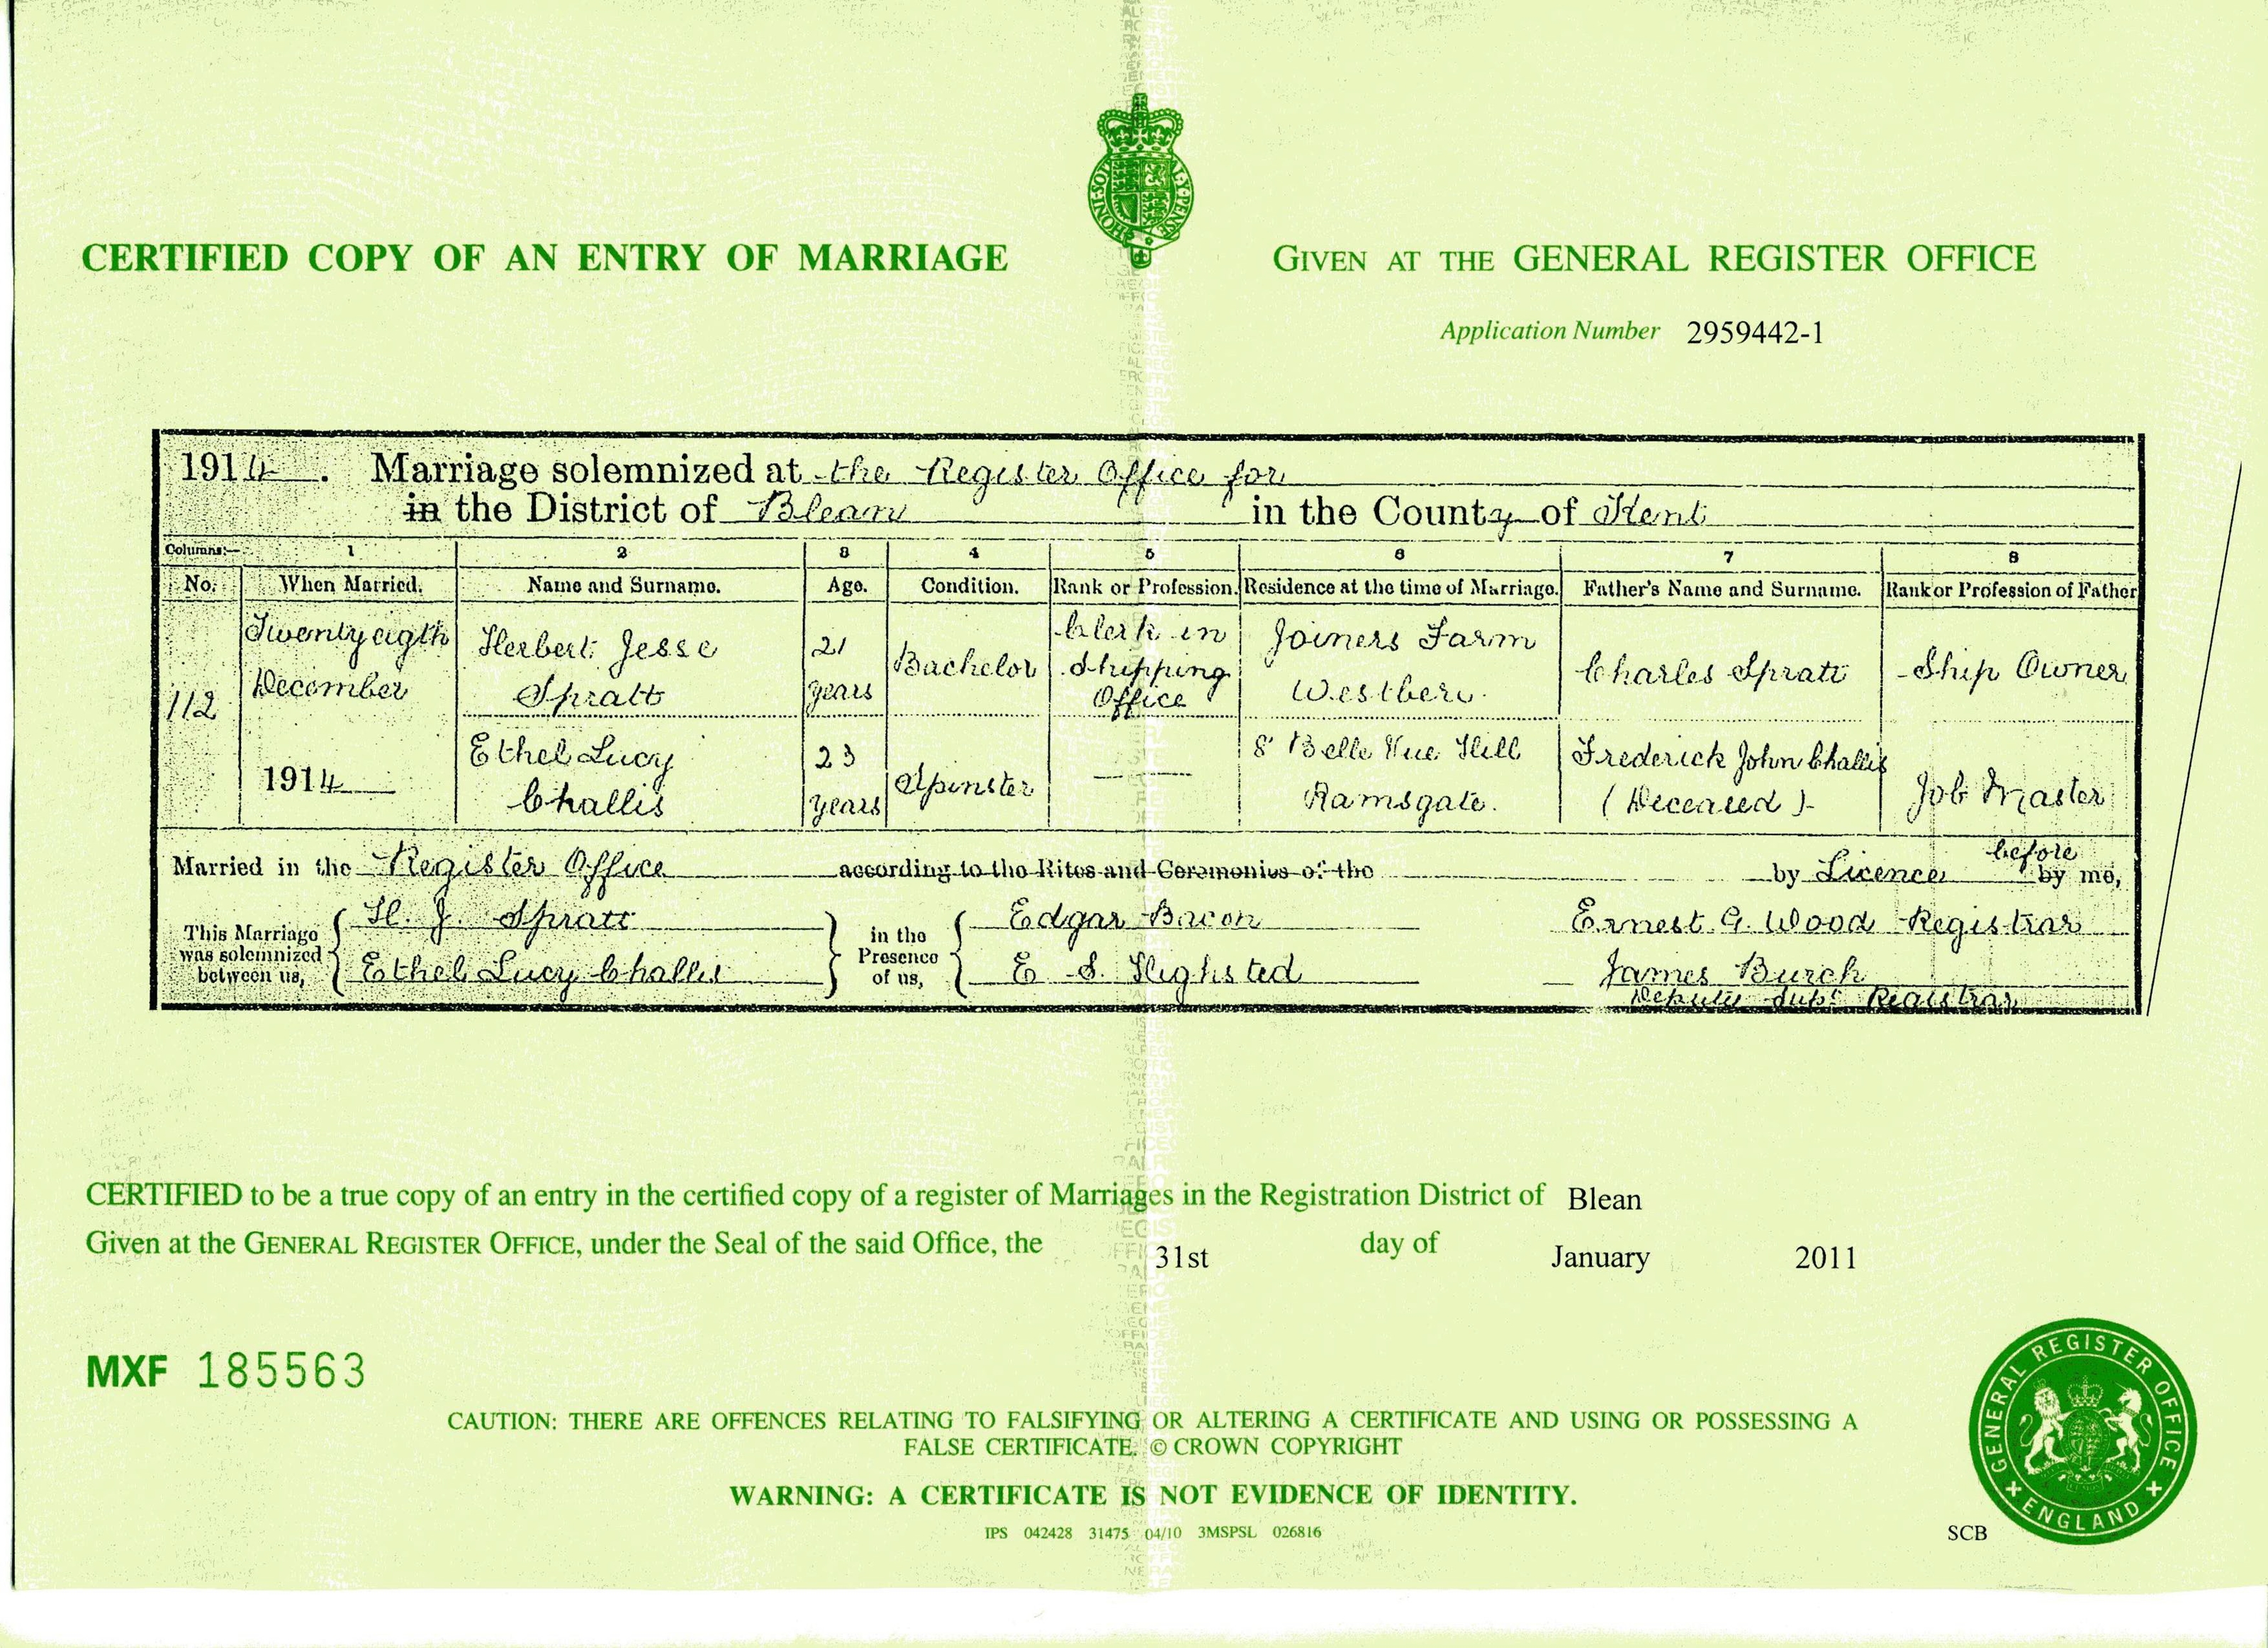 CERTIFIED COPY OF AN ENTRY OF MARRIAGE
GIVEN AT THE GENERAL REGISTER OFFICE
Application Number 2959442-1
1914. Marriage solemnized at the Register Office for
in the District of Blean in the County of Kent
Columns:— 1 2 3 4 5 6 7 8
No. When Married. Name and Surname. Age. Condition. Rank or Profession. Residence at the time of Marriage. Father's Name and Surname. Rank or Profession of Father
112
Twenty eigth
December
1914
Herbert Jesse
Spratt
21
years
Bachelor
Clerk in
Shipping
Office
Joiners Farm
Westbere
Charles Spratt
Ship Owner
Ethel Lucy
Challis
23
years
Spinster
8 Belle Vue Hill
Ramsgate.
Frederick John Challis
(Deceased)
Job Master
Married in the Register Office according to the Rites and Ceremonies of the by Licence before by me,
This Marriage
was solemnized
between us,
H. J. Spratt
Ethel Lucy Challis
in the
Presence
of us,
Edgar Bacon
E S. Highsted
Ernest G. Wood Registrar
James Burch
Deputy Supt Registrar
CERTIFIED to be a true copy of an entry in the certified copy of a register of Marriages in the Registration District of Blean
Given at the GENERAL REGISTER OFFICE, under the Seal of the said Office, the 31st day of January 2011
MXF 185563
CAUTION: THERE ARE OFFENCES RELATING TO FALSIFYING OR ALTERING A CERTIFICATE AND USING OR POSSESSING A
FALSE CERTIFICATE. © CROWN COPYRIGHT
WARNING: A CERTIFICATE IS NOT EVIDENCE OF IDENTITY.
IPS 042428 31475 04/10 3MSPSL 026816
SCB
GENERAL REGISTER OFFICE
ENGLAND